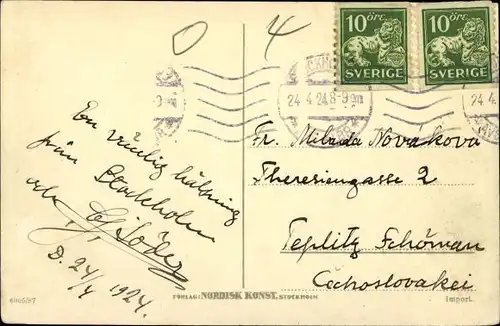 0 4
10 ÖRE 10 ÖRE
SVERIGE SVERIGE
24.4.24.8-9 24.4
En vänlig hälsning
från Stockholm
och
D. 24/4 1924.
Fr. Milada Novakova
Theresiengasse 2
Teplitz Schönau
Čechoslovakei
6005/87
FÖRLAG: NORDISK KONST, STOCKHOLM
Import.